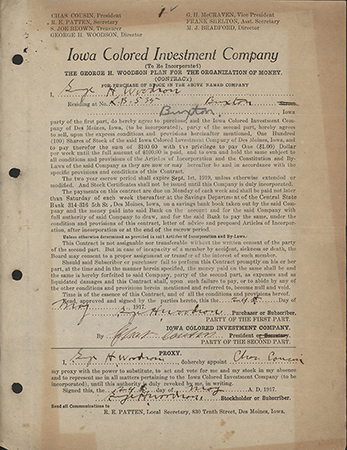 CHAS COUSIN, President
R. E. PATTEN, Secretary
S. JOE BROWN, Treasurer
GEORGE H. WOODSON, Director
G. H. McCRAVEN, Vice President
FRANK SKELTON, Asst. Secretary
M. J. BRADFORD, Director
Iowa Colored Investment Company
(To Be Incorporated)
THE GEORGE H. WOODSON PLAN FOR THE ORGANIZATION OF MONEY.
(CONTRACT)
FOR PURCHASE OF STOCK IN THE ABOVE NAMED COMPANY
I, Geo H Woodson
Residing at No. Buxton
Buxton, Iowa
party of the first part, do hereby agree to purchase and the Iowa Colored Investment
Company of Des Moines, Iowa, (to be incorporated), party of the second part, hereby agrees
to sell, upon the express conditions and provisions hereinafter mentioned, One Hundred
(100) Shares of the Stock of the said Iowa Colored Investment Company of Des Moines, Iowa, and
to pay therefor the sum of $100.00 with the privilege to pay One ($1.00) Dollar
per week until the full amount of $100.00 is paid; and to own and hold the same subject to
all conditions and provisions of the Articles of Incorporation and the Constitution and By-
Laws of the said Company as they are now or may hereafter be and in accordance with the
specific provisions and conditions of this Contract.
The two year escrow period shall expire Sept. 1st, 1919, unless otherwise extended or
modified. And Stock Certificates shall not be issued until this Company is duly incorporated.
The payments on this contract are due on Monday of each week and shall be paid not later
than Saturday of each week thereafter at the Savings Department of the Central State
Bank, Des Moines, Iowa, on a savings bank book taken out by the said Company
and the moneys paid into said Bank on this contract and for the said Company with
full authority of said Company to draw, and for the said Bank to pay the same, under the
condition and provisions of this contract, letter of advice and proposed Articles of Incorpor-
ation, after incorporation or at the end of the escrow period.
Unless otherwise determined as provided in said Articles of Incorporation and By-Laws.
This Contract is not assignable nor transferable without the written consent of the party
of the second part. But in case of incapacity of a member by accident, sickness or death, the
Board may consent to a proper assignment or transfer of the interest of such member.
Should said Subscriber or Purchaser fail to perform this Contract promptly on his or her
part, at the time and in the manner herein specified, the money paid on the same shall be and
the same is hereby forfeited to said Company, party of the second part, as expenses and as
liquidated damages and this Contract shall, upon such failure to pay, or to abide by any of
the other conditions and provisions herein mentioned and referred to, become null and void.
Time is of the essence of this Contract, and of all the conditions and provisions hereof.
Read, approved and signed by the parties hereto, this the 24th Day of
May, 1917.
Geo H Woodson Purchaser or Subscriber.
PARTY OF THE FIRST PART.
IOWA COLORED INVESTMENT COMPANY.
By Chas Cousin President
PARTY OF THE SECOND PART.
PROXY.
I, Geo H Woodson, do hereby appoint Chas Cousin
my proxy with the power to substitute, to act and vote for me and my stock in my absence
and to represent me in all matters pertaining to the Iowa Colored Investment Company (to be
incorporated), until this authority is duly revoked by me, in writing.
Signed this, the 24th day of May A. D. 1917.
Geo H Woodson, Stockholder or Subscriber.
Send all Communications to
R. E. PATTEN, Local Secretary, 830 Tenth Street, Des Moines, Iowa.